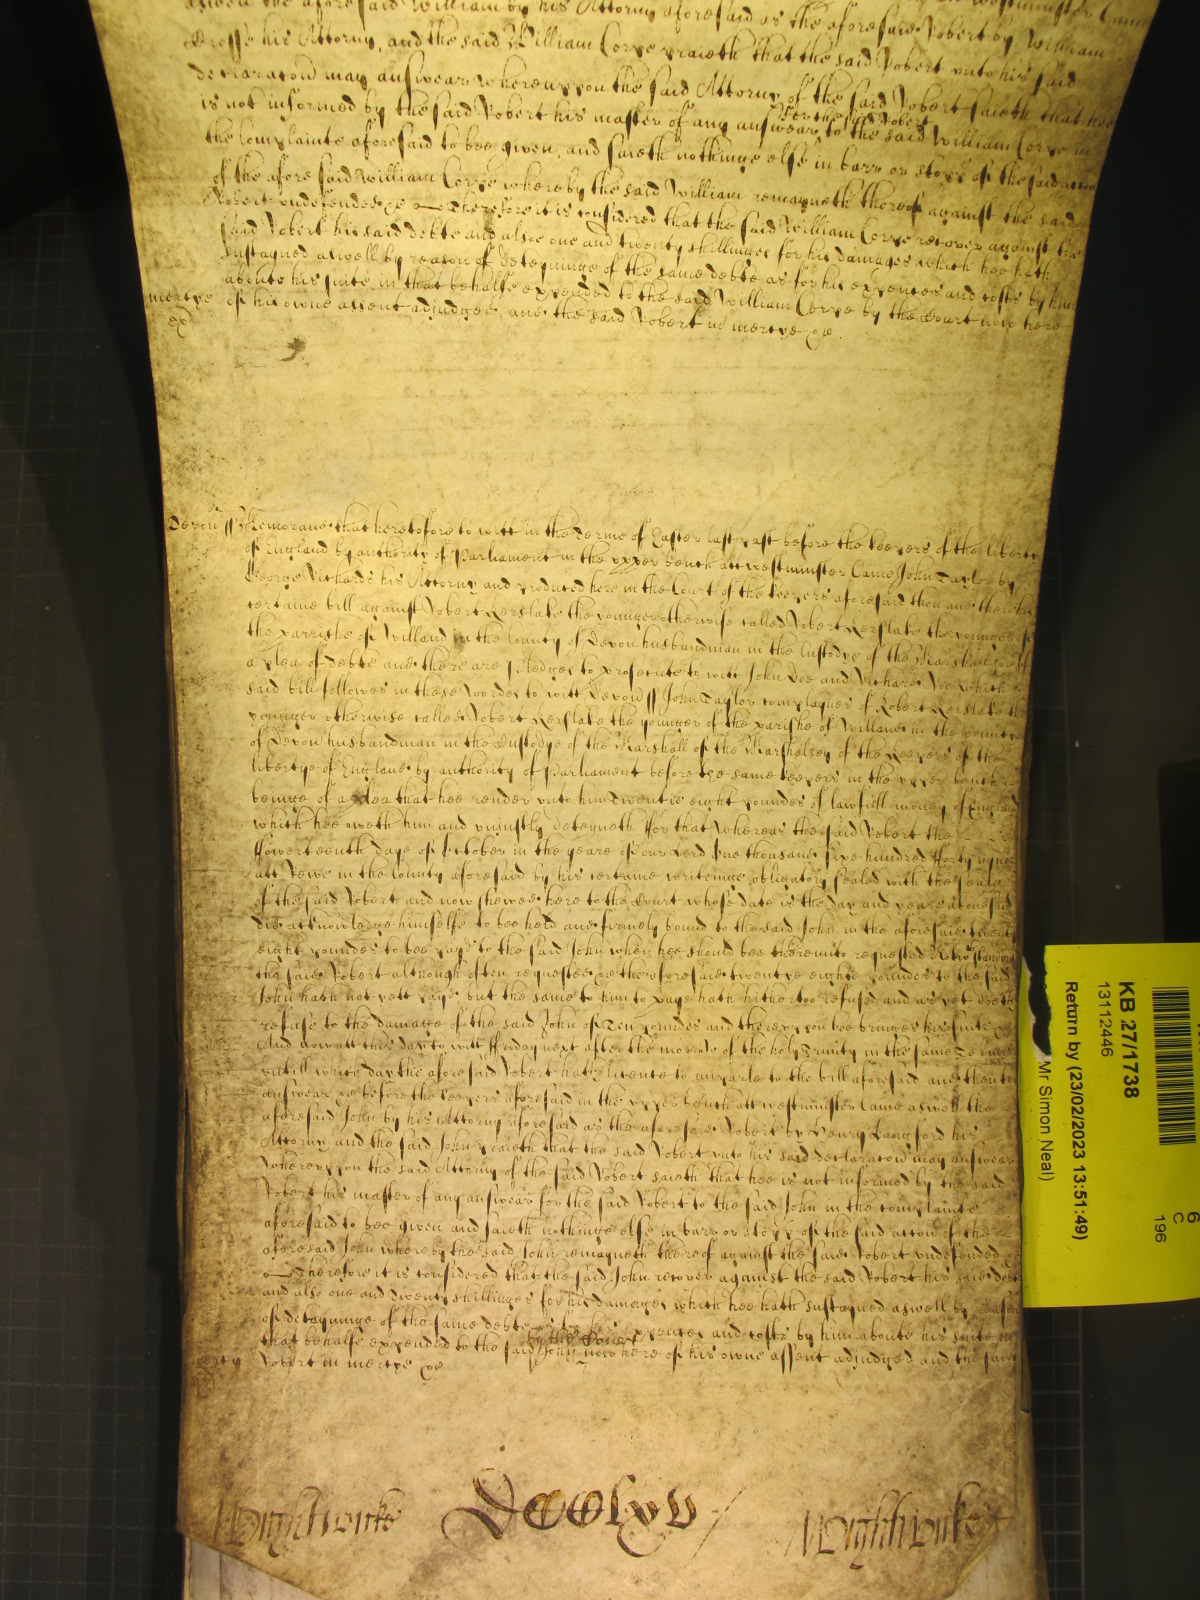 aswell the aforesaid William by his Attorny aforesaid as the aforesaid Robert by William
his Attorny, and the said William Corpe praieth that the said Robert unto his said
declaracon may answeare whereuppon the said Attorny of the said Robert saieth that hee
is not informed by the said Robert his master of any answeare for the said Robert to the said William Corpe in
the Complainte aforesaid to bee given, and saieth nothinge else in barr or stopp of the said accon
of the afore said William Corpe whereby the said William remayneth thereof against the said
Robert undefended &c Therefore it is considered that the said William Corpe recover against the
said Robert his said debte and alsoe one and twenty shillinges for his damages which hee hath
sustayned aswell by reason of deteyninge of the same debte as for his expences and costs by him
aboute his suite in that behalfe expended to the said William Corpe by the Court now here
mercye
of his owne assent adjudged, and the said Robert in mercye &c
Devon // Memorand that heretofore to witt in the Terme of Easter last past before the keepers of the liberty
of England by authority of Parliament in the upper bench att westminster Came John Taylor by
George Richards his Attorny and produced here in the Court of the keepers aforesaid then and there his
certaine bill against Robert Kerslake the younger otherwise called Robert Kerslake the younger of
the parrishe of Willand in the County of Devon husbandman in the Custodye of the Marshall &c of
a plea of debte and there are pledges to prosecute to witt John Doe and Richard Roe which
said bill followes in these wordes to witt Devon // John Taylor complaynes of Robert Kerslake the
younger otherwise called Robert Kerslake the younger of the parishe of Willand in the County
of Devon husbandman in the Custodye of the Marshall of the Marshalsey of the keepers of the
libertye of England by authority of Parliament before the same keepers in the upper bench
beinge of a plea that hee render unto him Twentie eight poundes of lawfull money of England
which hee oweth him and uniustly deteyneth For that whereas the said Robert the
Fowerteenth daye of October in the yeare of our Lord One thousand sixe hundred Forty nyne
att Rewe in the County aforesaid by his certaine writeinge obligatory sealed with the seale
of the said Robert and now shewed here to the Court whose date is the day and yeare aforesaid
did acknowledge himselfe to bee held and firmely bound to the said John in the aforesaid twenty
eight poundes to bee payd to the said John when hee should bee thereunto requested Notwithstanding
the said Robert although often requested &c the aforesaid twentye eighte poundes to the said
John hath not yett payd but the same to him to paye hath hithertoo refused and as yet doeth
refuse to the damage of the said John of Ten poundes and thereuppon hee bringes his suite &c
And now att this day to witt Friday next after the morrow of the holy Trinity in the same Terme
untill which day the aforesaid Robert hath licence to imparle to the bill aforesaid and then to
answeare &c before the keepers aforesaid in the upper bench att westminster Came aswell the
aforesaid John by his Attorny aforesaid as the aforesaid Robert by Henry Langford his
Attorny and the said John praieth that the said Robert unto his said declaracon may answeare
Whereuppon the said Attorny of the said Robert saieth that hee is not informed by the said
Robert his master of any answeare for the said Robert to the said John in the complainte
aforesaid to bee given and saieth nothinge else in barr or stopp of the said accon of the
aforesaid John whereby the said John remayneth thereof against the said Robert undefended &c
Therefore it is considered that the said John recover against the said Robert his said debte
and also one and twenty shillinges for his damages which hee hath sustayned aswell by reason
of deteyninge of the same debte expences and costs by him aboute his suite in
that behalfe expended to the said John by the Court now here of his owne assent adjudged and the said
mercy
Robert in mercye &c
Wightwicke DCClxv Wightwicke
KB 27/1738
13112446
Return by (23/02/2023 13:51:49)
Mr Simon Neal)
6
C
196